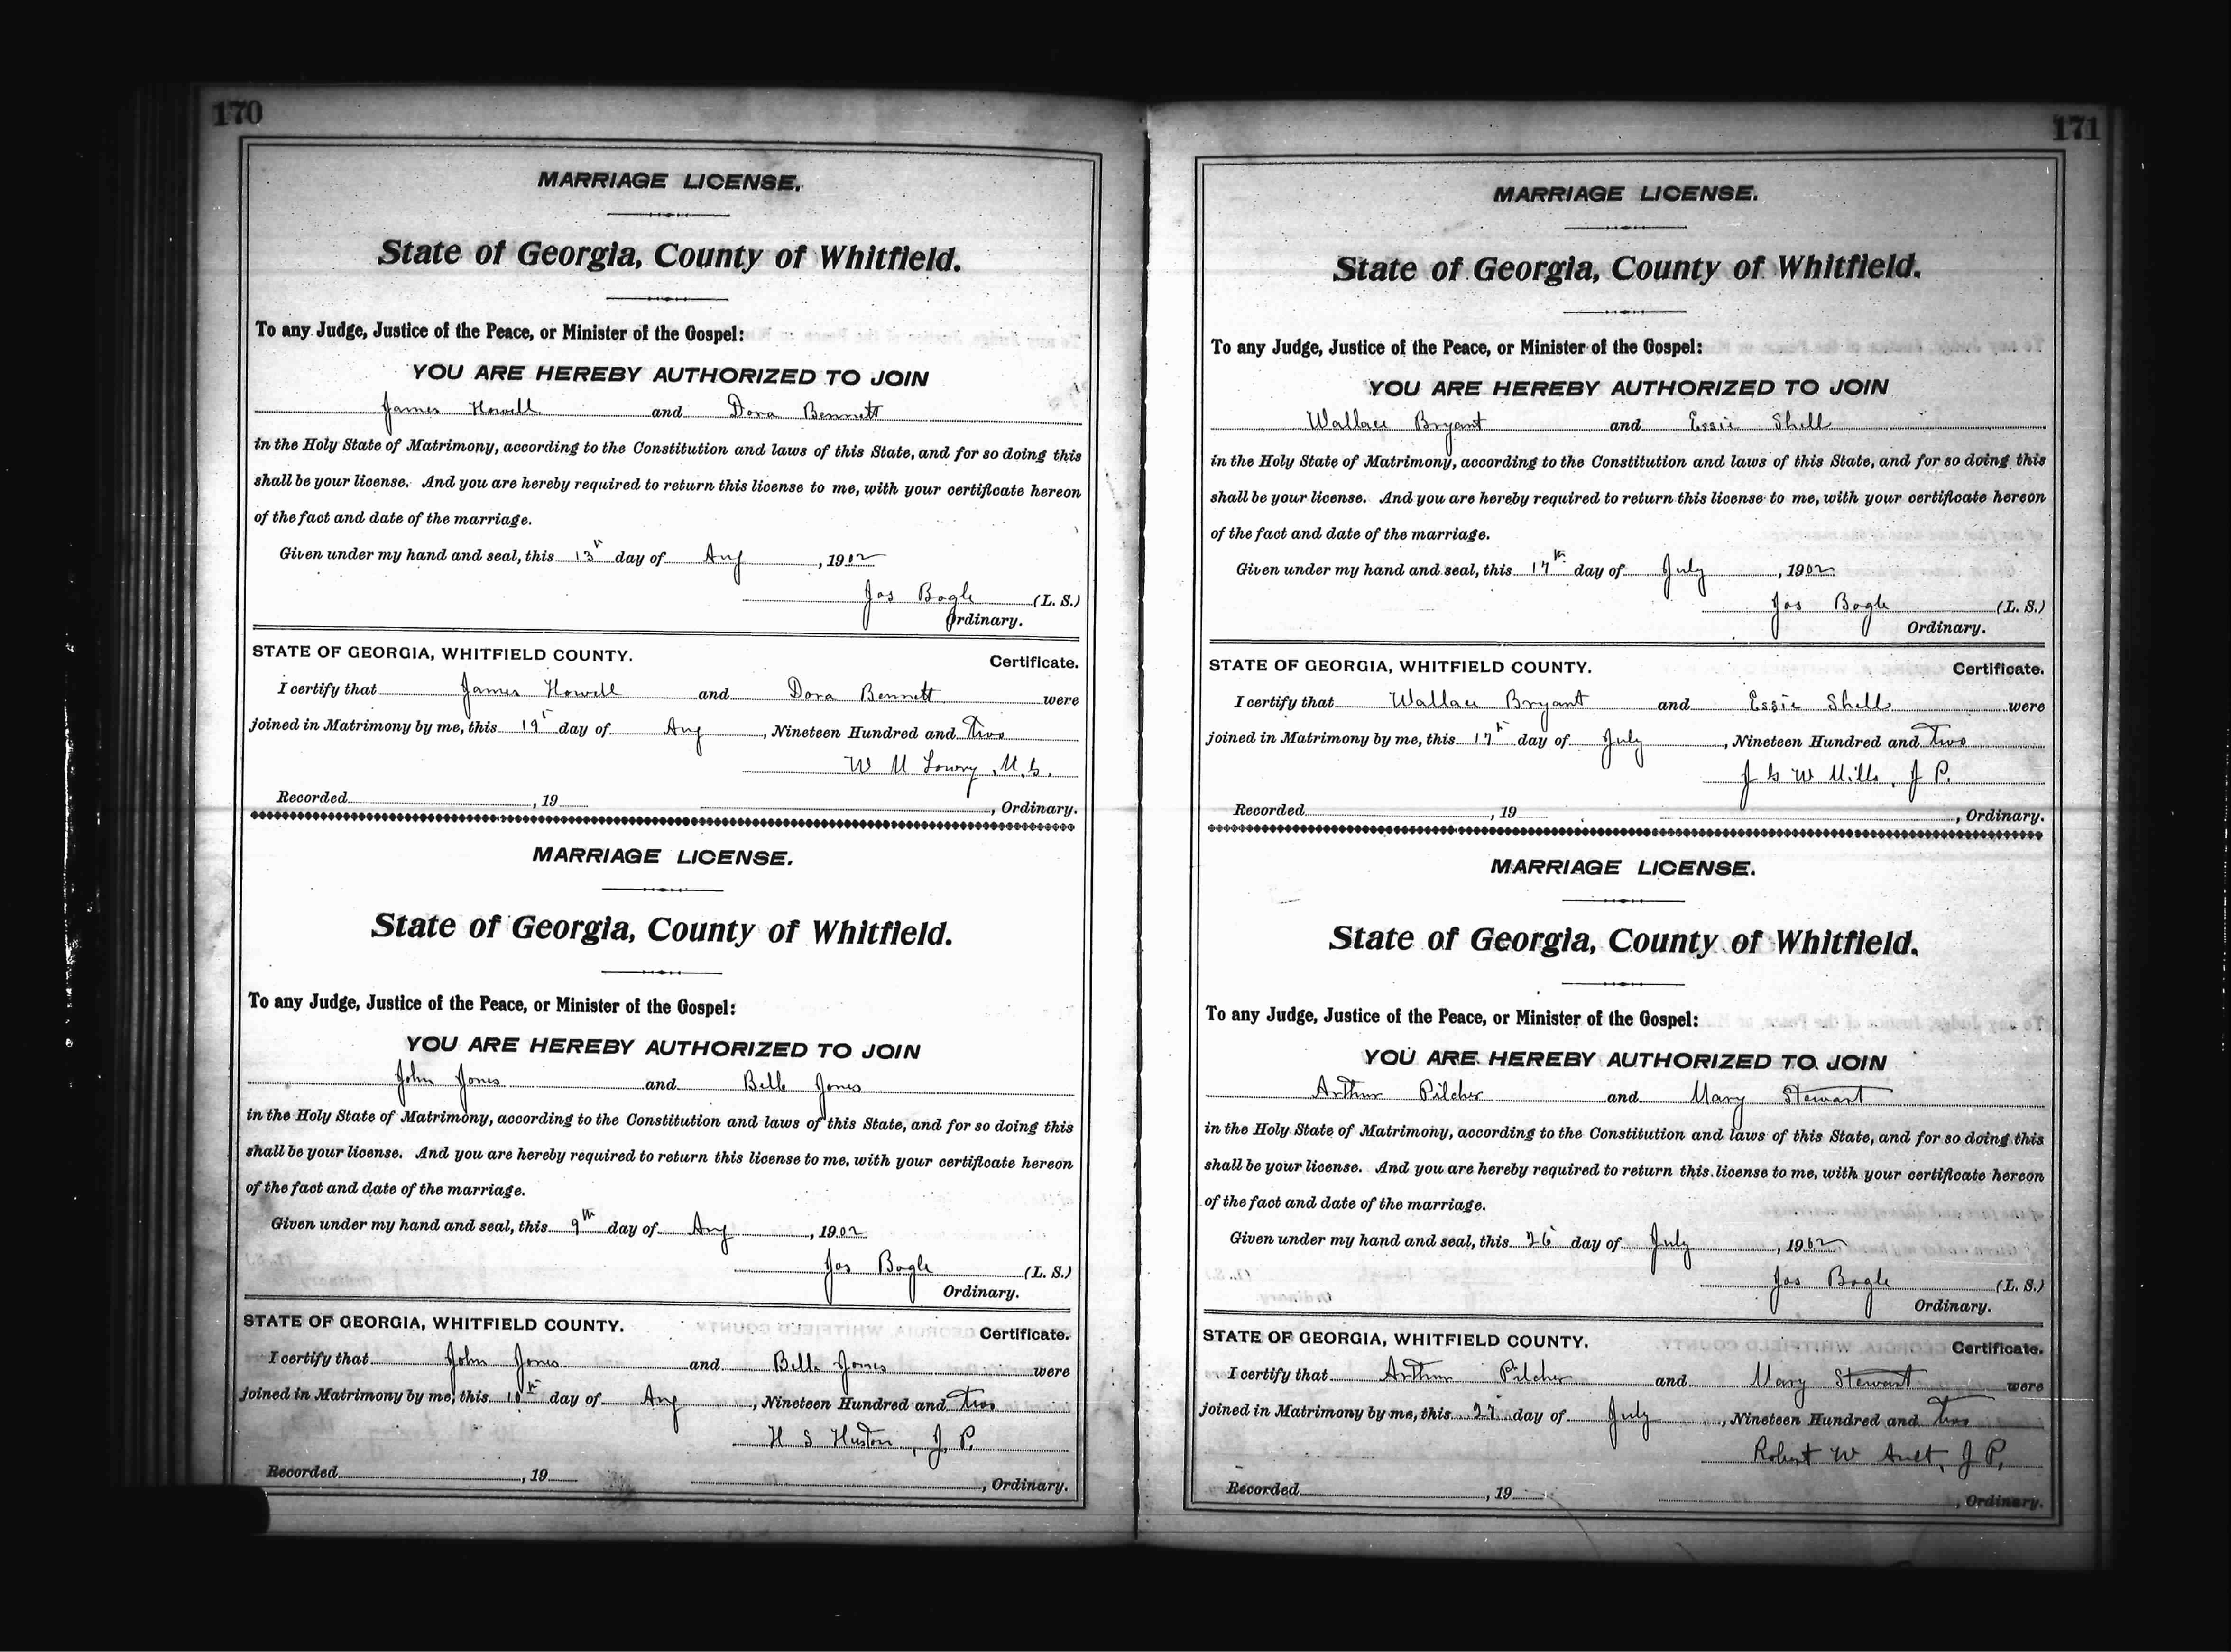 170
MARRIAGE LICENSE.
State of Georgia, County of Whitfield.
To any Judge, Justice of the Peace, or Minister of the Gospel:
YOU ARE HEREBY AUTHORIZED TO JOIN
James Howell and Dora Bennett
in the Holy State of Matrimony, according to the Constitution and laws of this State, and for so doing this
shall be your license. And you are hereby required to return this license to me, with your certificate hereon
of the fact and date of the marriage.
Given under my hand and seal, this 13 day of Aug, 1902
Jos Bogle (L. S.)
Ordinary.
STATE OF GEORGIA, WHITFIELD COUNTY. Certificate.
I certify that James Howell and Dora Bennett were
joined in Matrimony by me, this 19 day of Aug, Nineteen Hundred and Two
W M Lowry, M. G.
Recorded , 19 , Ordinary.
MARRIAGE LICENSE.
State of Georgia, County of Whitfield.
To any Judge, Justice of the Peace, or Minister of the Gospel:
YOU ARE HEREBY AUTHORIZED TO JOIN
John Jones and Belle Jones
in the Holy State of Matrimony, according to the Constitution and laws of this State, and for so doing this
shall be your license. And you are hereby required to return this license to me, with your certificate hereon
of the fact and date of the marriage.
Given under my hand and seal, this 9th day of Aug, 1902
Jos Bogle (L. S.)
Ordinary.
STATE OF GEORGIA, WHITFIELD COUNTY. Certificate.
I certify that John Jones and Belle Jones were
joined in Matrimony by me, this 10th day of Aug, Nineteen Hundred and Two
H S Huston, J. P.
Recorded , 19 , Ordinary.
171
MARRIAGE LICENSE.
State of Georgia, County of Whitfield.
To any Judge, Justice of the Peace, or Minister of the Gospel:
YOU ARE HEREBY AUTHORIZED TO JOIN
Wallace Bryant and Essie Shell
in the Holy State of Matrimony, according to the Constitution and laws of this State, and for so doing this
shall be your license. And you are hereby required to return this license to me, with your certificate hereon
of the fact and date of the marriage.
Given under my hand and seal, this 17th day of July, 1902
Jos Bogle (L. S.)
Ordinary.
STATE OF GEORGIA, WHITFIELD COUNTY. Certificate.
I certify that Wallace Bryant and Essie Shell were
joined in Matrimony by me, this 17th day of July, Nineteen Hundred and Two
J G W Mills, J P.
Recorded , 19 , Ordinary.
MARRIAGE LICENSE.
State of Georgia, County of Whitfield.
To any Judge, Justice of the Peace, or Minister of the Gospel:
YOU ARE HEREBY AUTHORIZED TO JOIN
Arthur Pilcher and Mary Stewart
in the Holy State of Matrimony, according to the Constitution and laws of this State, and for so doing this
shall be your license. And you are hereby required to return this license to me, with your certificate hereon
of the fact and date of the marriage.
Given under my hand and seal, this 26 day of July, 1902
Jos Bogle (L. S.)
Ordinary.
STATE OF GEORGIA, WHITFIELD COUNTY. Certificate.
I certify that Arthur Pilcher and Mary Stewart were
joined in Matrimony by me, this 27 day of July, Nineteen Hundred and Two
Robert W Ault, J P.
Recorded , 19 , Ordinary.